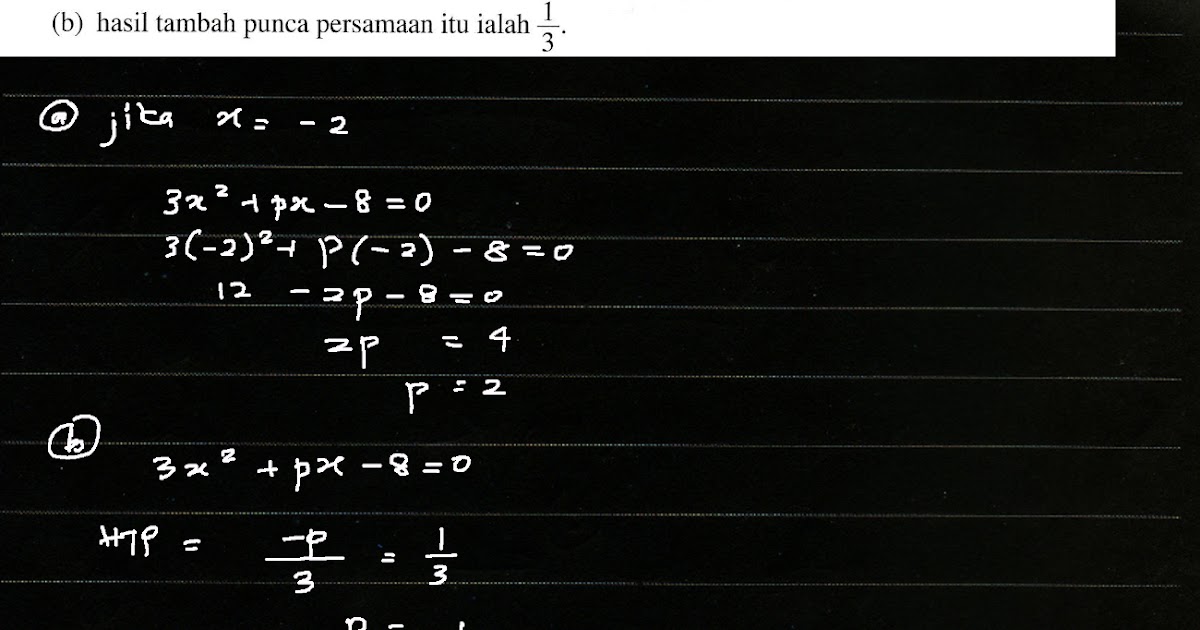 (b) hasil tambah punca persamaan itu ialah 1/3.
(a) jika x = -2
3x² + px - 8 = 0
3(-2)² + p(-2) - 8 = 0
12 - 2p - 8 = 0
2p = 4
p = 2
(b)
3x² + px - 8 = 0
HTP = -p/3 = 1/3